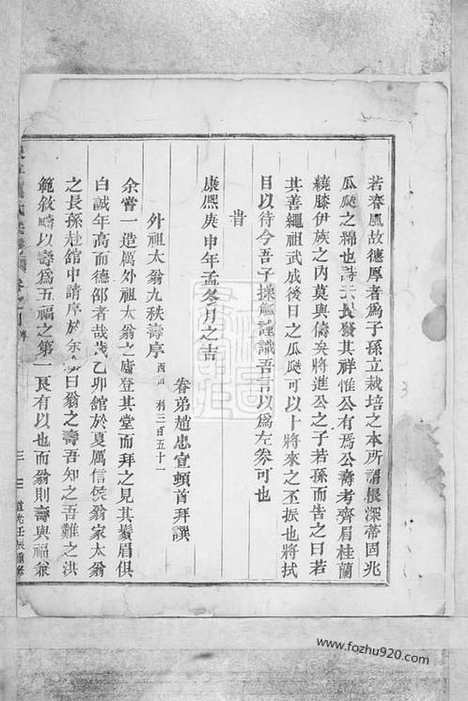 若齊風故德厚者爲子孫立栽培之本所謂根深蒂固兆
瓜瓞之綿也詩云長發其祥惟公有焉公壽考齊眉桂蘭
繞膝伊族之內莫與儔矣將進公之子若孫而告之曰若
其善繩祖武成後日之瓜瓞可以十將來之丕振也將拭
目以待今吾子操觚謹識吾言以爲左券可也
旹
康熙庚申年孟冬月之吉
眷弟趙忠宣頓首拜撰
外祖太翁九秩壽序
余嘗一造厲外祖太翁之廬登其堂而拜之見其鬚眉俱
白誠年高而德邵者哉乙卯館於夏厲信侯翁家太翁
之長孫赴館中請序於余余曰翁之壽吾知之吾難之洪
範敘疇以壽爲五福之第一良有以也而翁則壽與福兼
道光壬
www.fozhu920.com